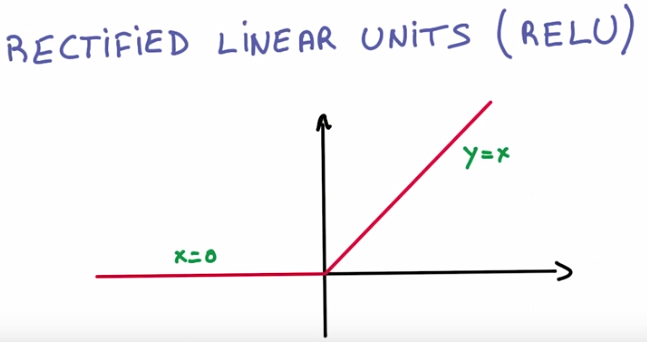 RECTiFiED LiNEAR UNiTS (RELU)
y=x
x=0